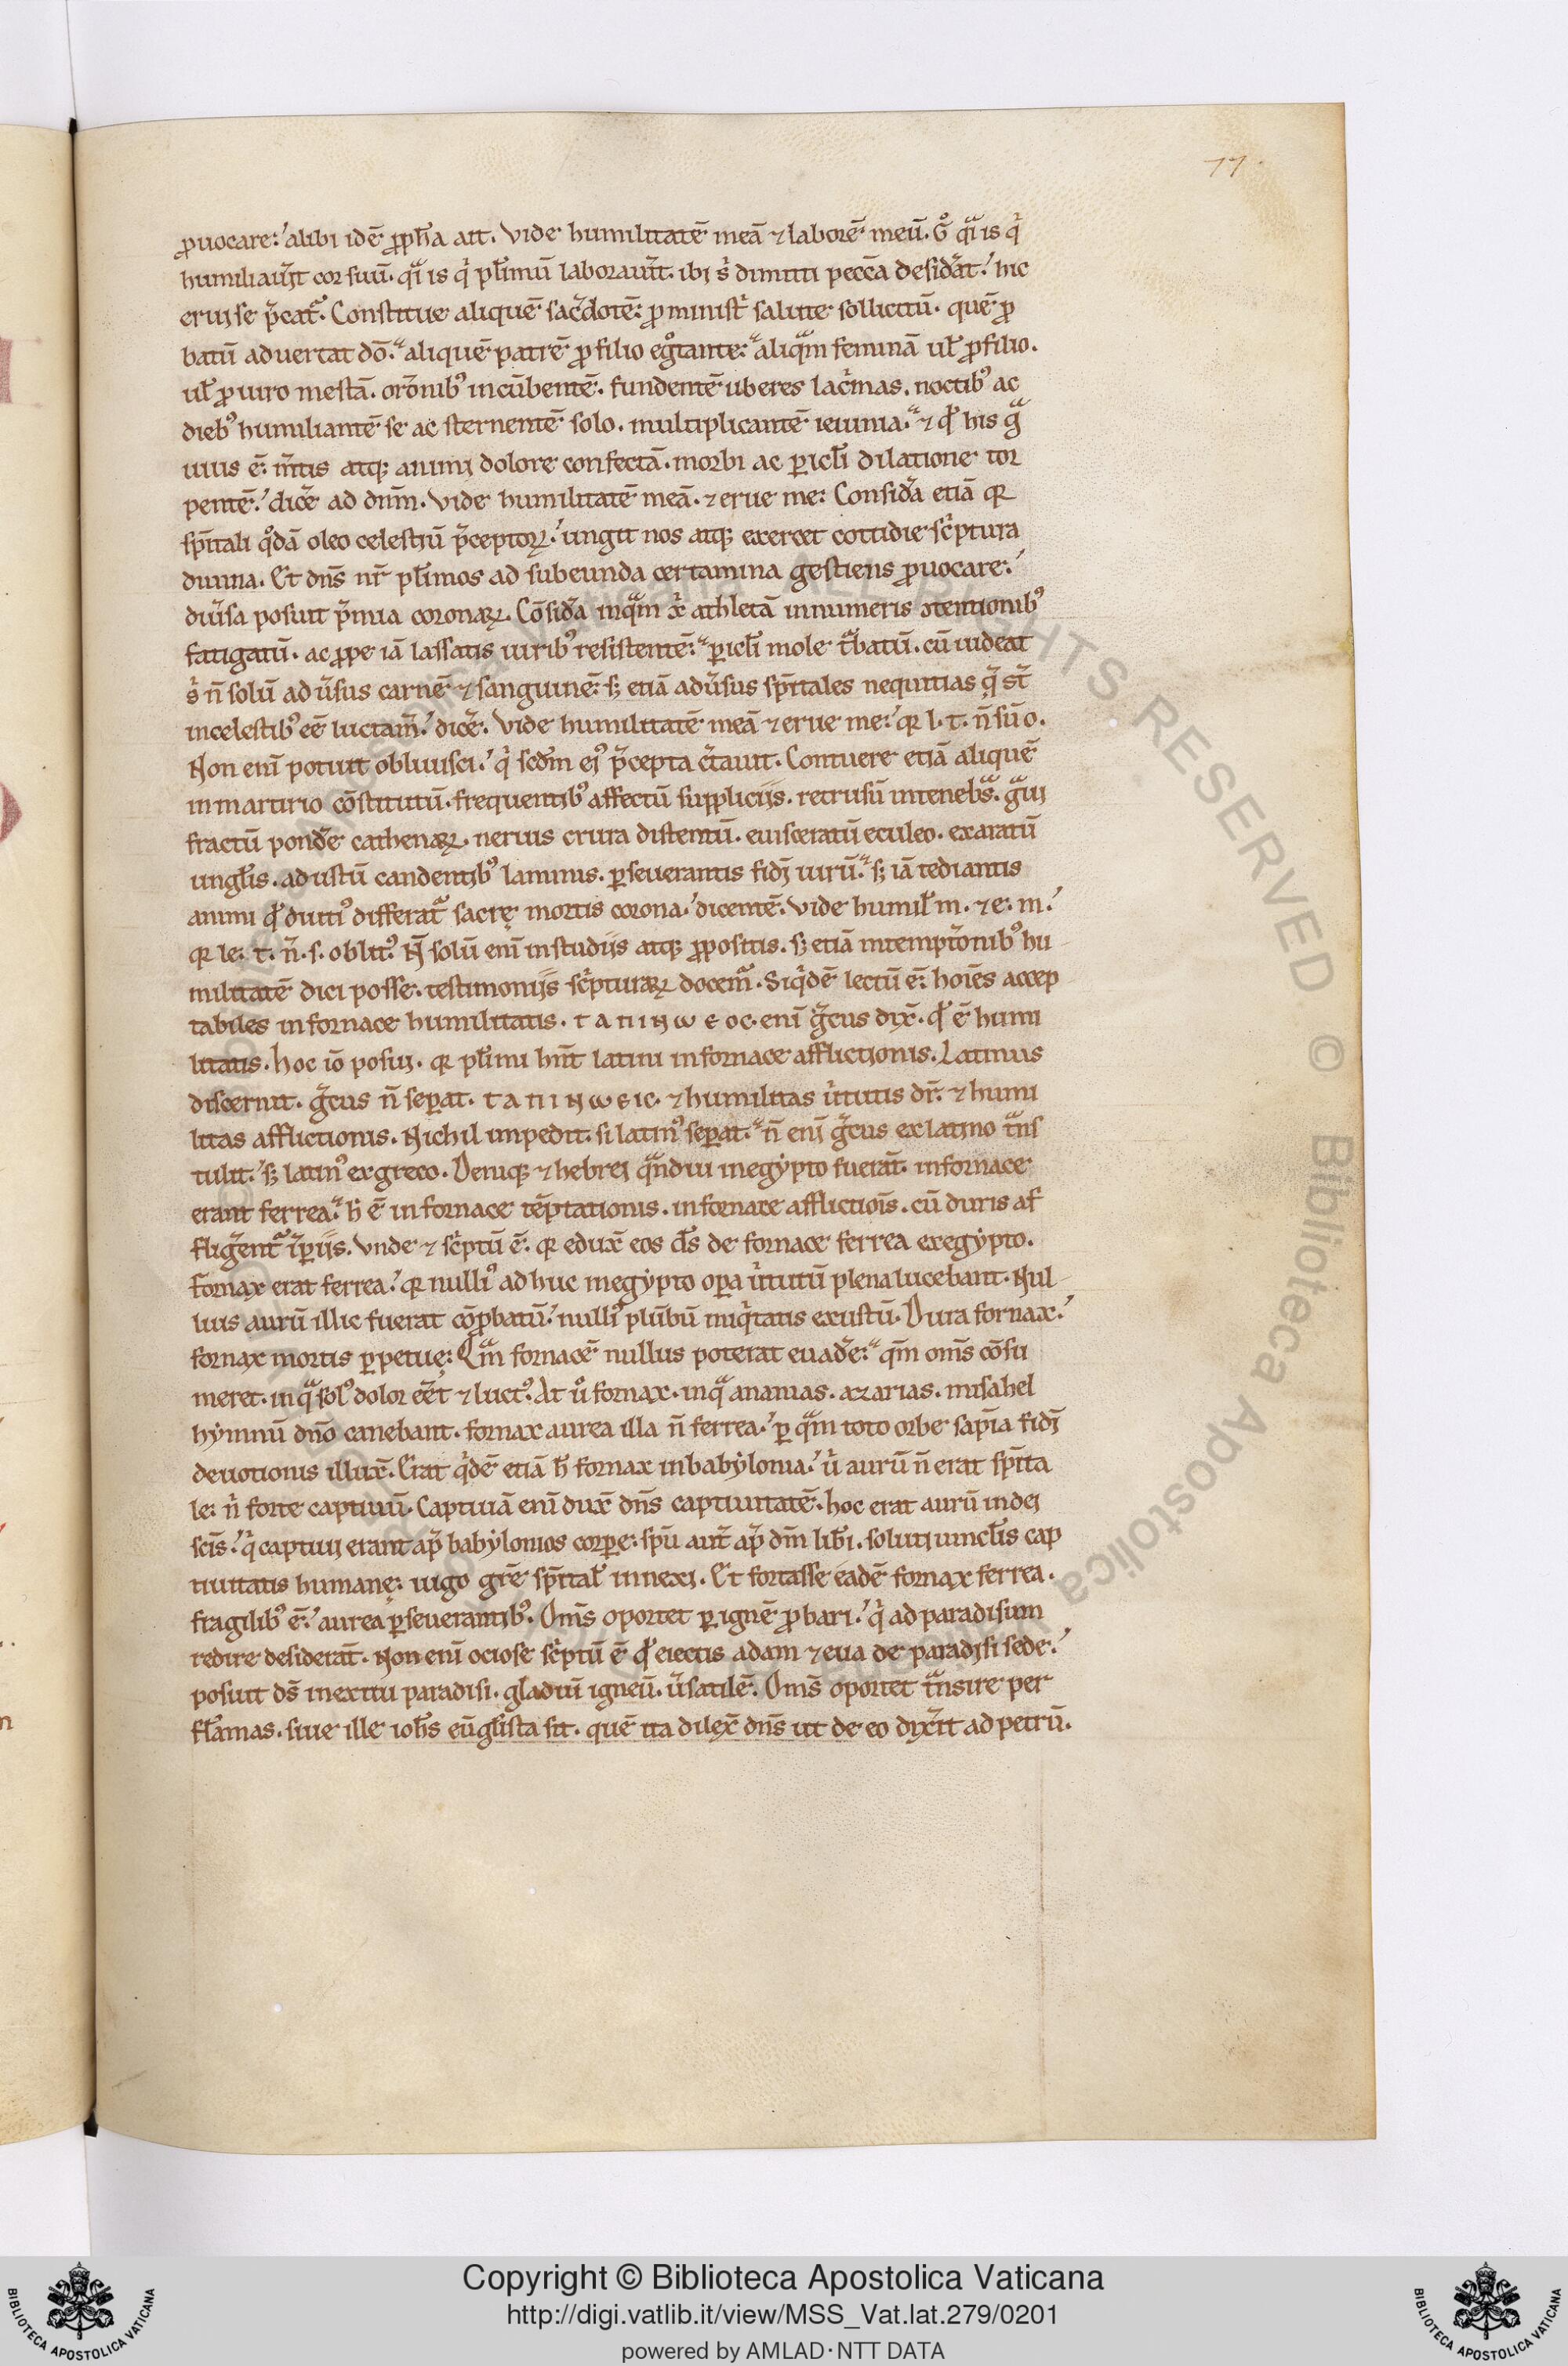 77
ꝓuocare: alibi idē ꝓph̄a ait. Vide humilitatē meā ⁊ laborē meū. Gͦ qͣi is qͥ
humiliau͛it cor suū. qͣi is qͥ pl̄imū laborau͛it. ibi sͥ dimitti pecc̄a desid͛at. hic
erui se p͛cat᷑. Constitue aliquē sac͛dotē: ꝓ ministͥ salute sollicitū. quē ꝓ
batū aduertat dō. aliquē patrē ꝓ filio egͦtante: aliqͣm feminā ul̄ ꝓ filio.
ul̄ ꝓ uiro mestā. or̄onibꝰ incūbentē. fundentē uberes lacͥmas. noctibꝰ ac
diebꝰ humiliantē se ac sternentē solo. multiplicantē ieiunia. ⁊ qd̄ his gͣ
uius ē: m̄tis atqꝫ animi dolore confectā. morbi ac ꝑicl̄i dilatione tor
pentē. dic͛e ad dn̄m. Vide humilitatē meā. ⁊ erue me: Consid͛a etiā qꝛ
sp̄itali qͦdā oleo celestiū p͛ceptoꝝ. ungit nos atqꝫ exercet cottidie scͥptura
diuina. Et dn̄s nr̄ pl̄imos ad subeunda certamina gestiens ꝓuocare:
diu͛sa posuit p͛mia coronaꝝ. Cōsid͛a inqͣm xͥ athletā innumeris ↄtentionibꝰ
fatigatū. ac ꝓpe iā lassatis uiribꝰ resistentē: ꝑicl̄i mole t᷑batū. cū uideat
sͥ n̄ solū adu͛sus carnē ⁊ sanguinē: sꝫ etiā adu͛sus sp̄itales nequitias q͛ st̄
incelestibꝰ eē luctam̄. dic͛e. Vide humilitatē meā ⁊ erue me: qꝛ l. t. n̄ sū o.
Non enī potuit obliuisci. qͥ scd̄m eiꝰ p͛cepta c͛tauit. Contuere etiā aliquē
in martirio cōstitutū. frequentibꝰ affectū suppliciis. retrusū intenebͣs. gͣui
fractū pond͛e cathenaꝝ. neruis crura distentū. euisceratū eculeo. exaratū
ungl̄is. adustū candentibꝰ laminis. ꝑseuerantis fidi uirū. sꝫ iā tediantis
animi qd̄ diutiꝰ differat᷑ sacrę mortis corona. dicentē: Vide humil̄ m. ⁊ e: m.
qꝛ le: t. n̄. s. oblitꝰ. N̄ solū enī in studiis atqꝫ ꝓpositis. sꝫ etiā intempt͛onibꝰ hu
militatē dici posse: testimoniis scͥpturaꝝ docem᷑. Siqͥdē lectū ē: hoīes accep
tabiles in fornace humilitatis. τ α π ι ν ω ϲ ε ο ϲ. enī g͛cus dix̄. qd̄ ē humi
litatis. Hoc iō posui. qꝛ pl̄imi hn̄t latini in fornace afflictionis. Latinus
discernit. g͛cus n̄ seꝑat. τ α π ι ν ω ϲ ι ϲ. ⁊ humilitas uͥtutis dr̄. ⁊ humi
litas afflictionis. Nichil impedit. si latinꝰ seꝑat. n̄ enī g͛cus ex latino tͣns
tulit. sꝫ latinꝰ ex greco. Deniqꝫ ⁊ hebrei qͣndiu inegẏpto fuerāt. in fornace
erant ferrea. h̄ ē in fornace tēptationis. in fornace afflictiōis. cū duris af
flig͛ent᷑ īꝑiis. Vnde ⁊ scͥptū ē. qꝛ edux̄ eos d̄s de fornace ferrea exegẏpto.
Fornax erat ferrea. qꝛ nulliꝰ adhuc inegẏpto oꝑa uͥtutū plena lucebant. Nul
lius aurū illic fuerat cōꝓbatū. nulliꝰ plūbū iniqͥtatis exustū. Dura fornax.
fornax mortis ꝑpetuę: Qͣm fornacē nullus poterat euad͛e: qͣm om̄s cōsu
meret. in qͣ solꝰ dolor ee͛t ⁊ luctꝰ. At uͦ fornax. in qͣ ananias. azarias. misahel
hẏmnū dn̄o canebant. fornax aurea illa n̄ ferrea. ꝑ qͣm toto orbe sap̄ia fidi
deuotionis illux̄. Erat qͥdē etiā h̄ fornax in babẏlonia. uͥ aurū n̄ erat sp̄ita
le: nͥ forte captiuū. Captiuā enī dux̄ dn̄s captiuitatē. hoc erat aurū in dei
scīs. qͥ captiui erant ap͛ babẏlonios corꝑe: sp̄u aut̄ ap͛ dm̄ lib̄i. soluti uincl̄is cap
tiuitatis humanę: iugo grē sp̄ital̄ innexi. Et fortasse eadē fornax ferrea.
fragilibꝰ ē. aurea ꝑseuerantibꝰ. Om̄s oportet ꝑ ignē ꝓbari. qͥ ad paradisum
redire desiderāt. Non enī ociose scͥptū ē qd̄ eiectis adam ⁊ eua de paradisi sede.
posuit ds̄ inexitu paradisi. gladiū igneū. u͛satilē. Om̄s oportet tͣnsire per
fl̄amas. siue ille ioh̄s eūgl̄ista sit. quē ita dilex̄ dn̄s ut de eo dix͛it ad petrū.
Copyright © Biblioteca Apostolica Vaticana
http://digi.vatlib.it/view/MSS_Vat.lat.279/0201
powered by AMLAD·NTT DATA
BIBLIOTECA APOSTOLICA VATICANA
BIBLIOTECA APOSTOLICA VATICANA